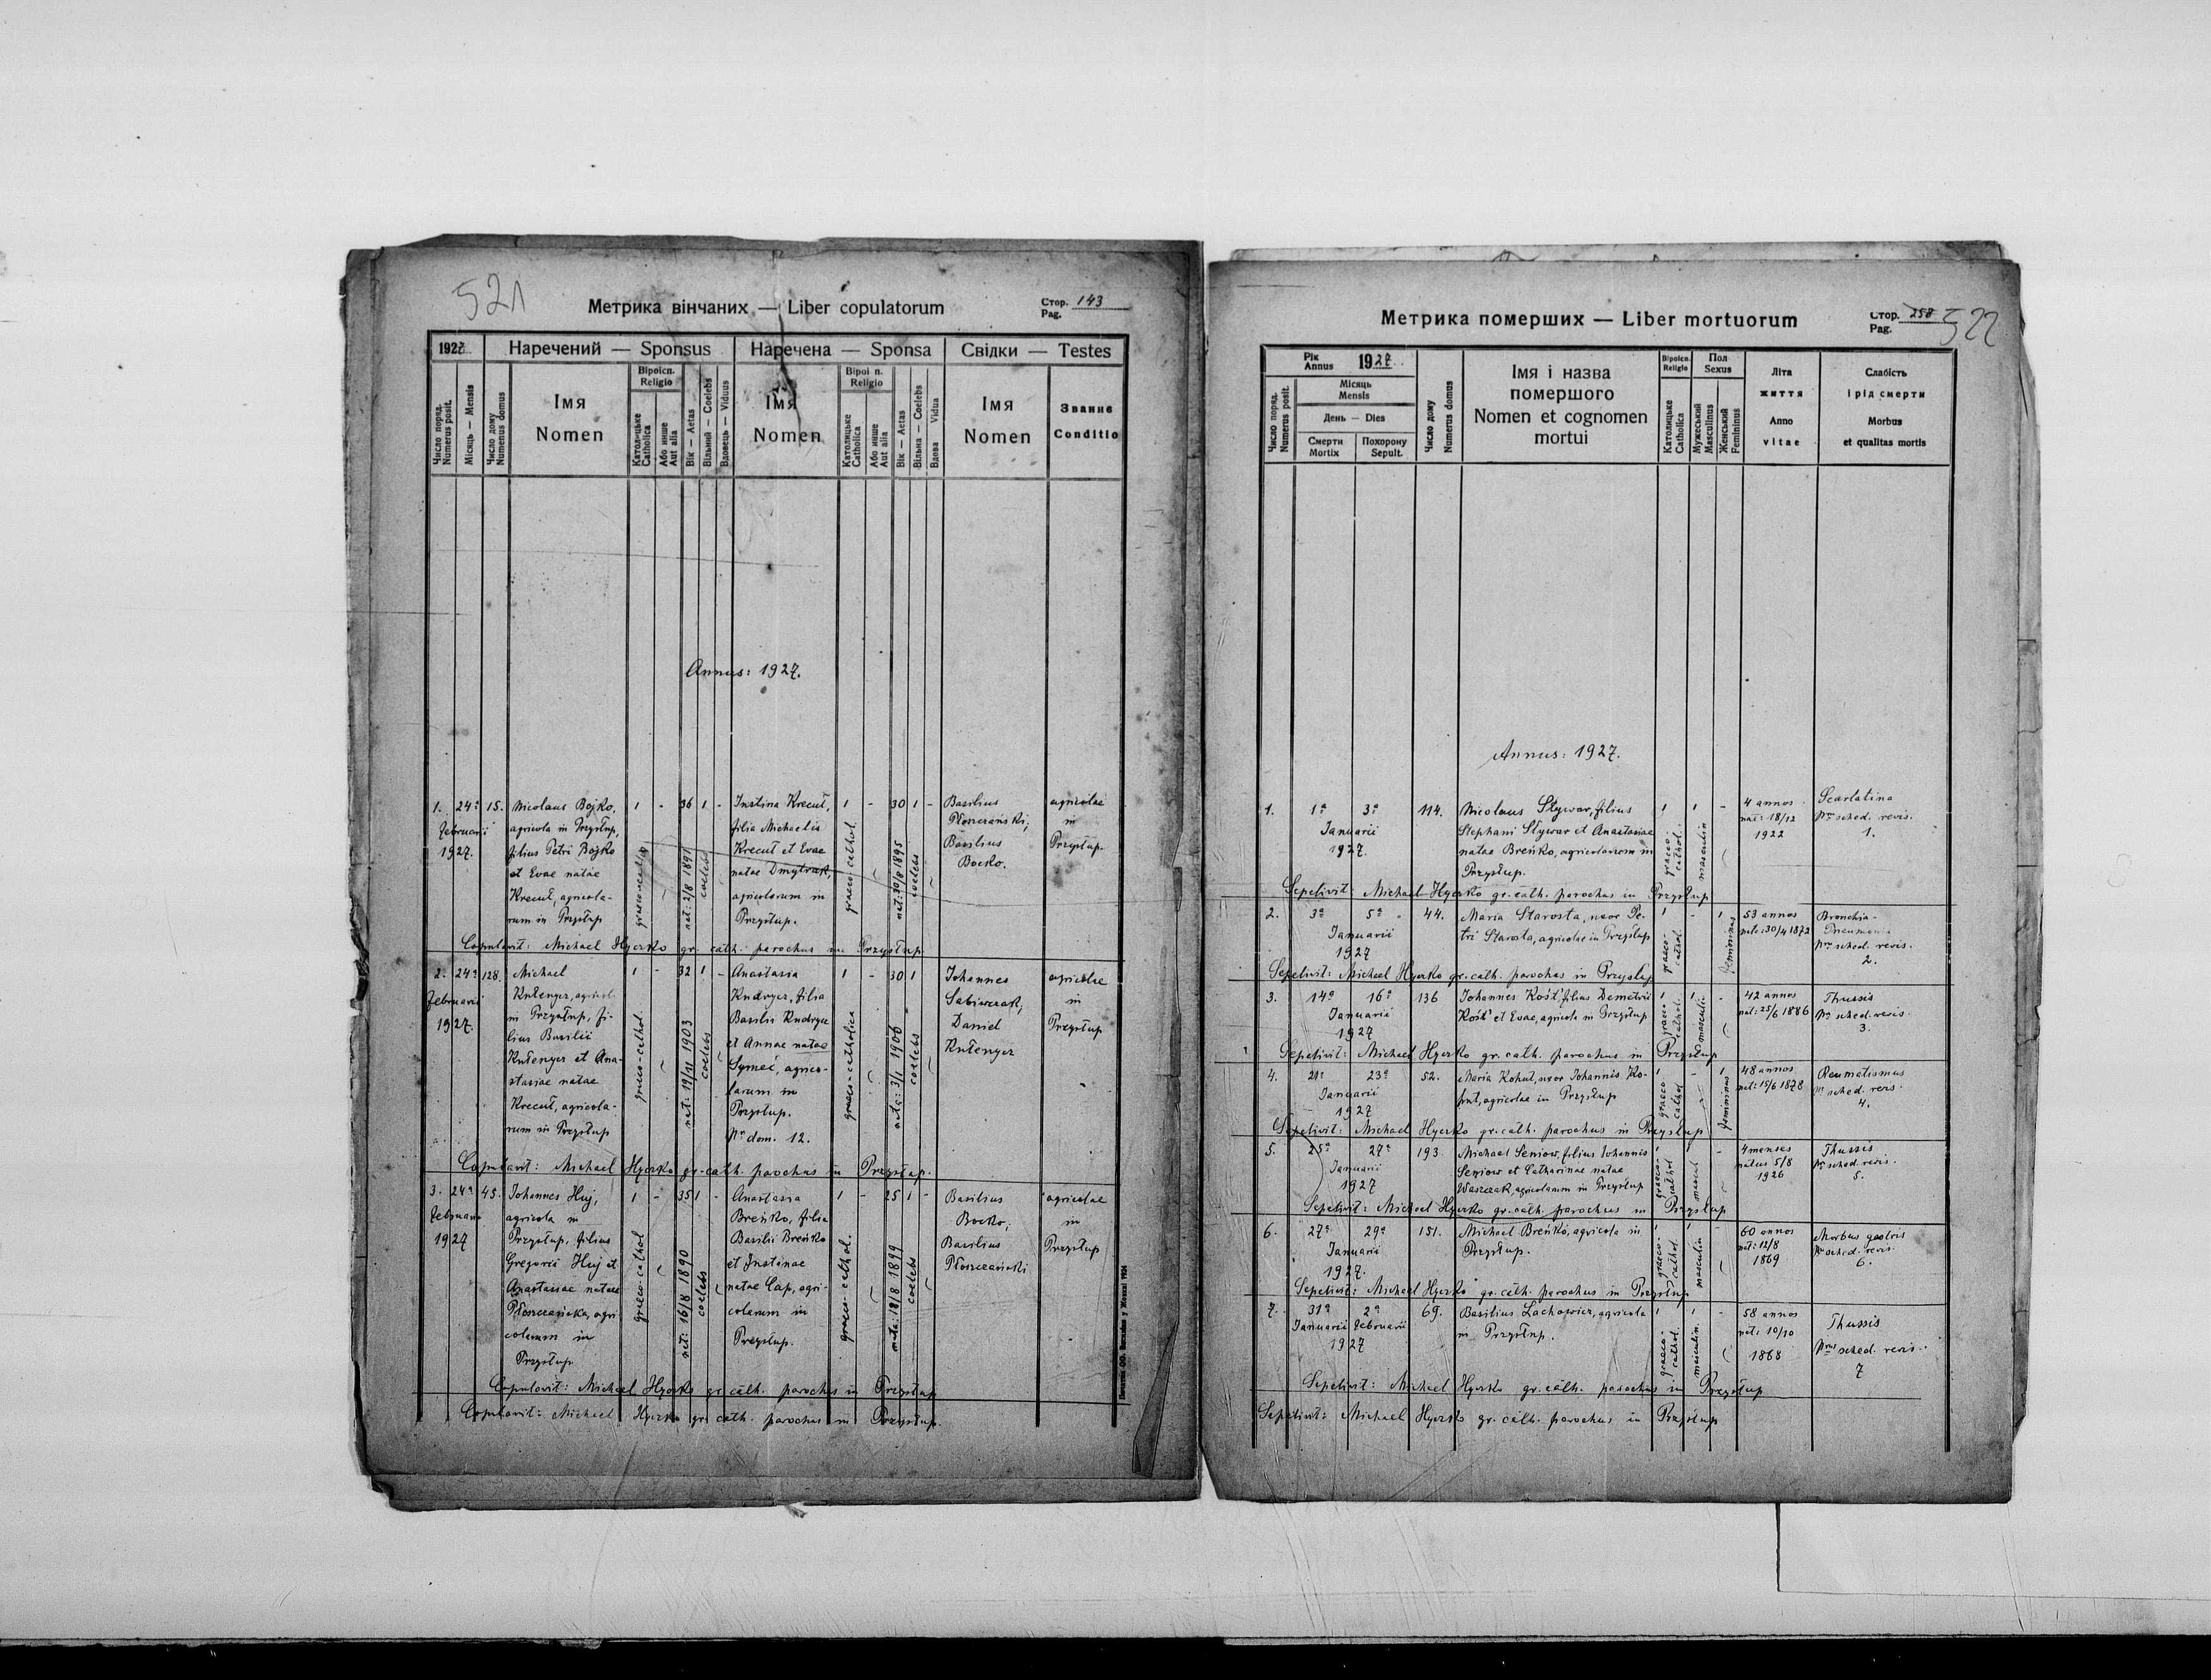 521
Метрика вінчаних — Liber copulatorum
Стор. 143
Pag.
1927
Наречений — Sponsus
Наречена — Sponsa
Свідки — Testes
Число поряд.
Numerus posit.
Місяць — Mensis
Число дому
Numerus domus
Імя
Nomen
Віроісп.
Religio
Католицьке
Catholica
Або инше
Aut alia
Вік — Aetas
Вільний — Coelebs
Вдовець — Viduus
Імя
Nomen
Католицьке
Catholica
Або инше
Aut alia
Вік — Aetas
Вільна — Coelebs
Вдова Vidua
Імя
Nomen
Званнє
Conditio
Annus: 1927.
1. 24a 15.
Februarii
1927.
Nicolaus Bojko,
agricola in Przysłup,
filius Petri Bojko
et Evae natae
Krecuł, agricola-
rum in Przysłup
1 - 36 1 -
nat: 2/8 1891
coelebs
Justina Krecuł,
filia Michaelis
Krecuł et Evae
natae Dmytrak,
agricolarum in
Przysłup.
1 - 30 1 -
graeco-cathol.
nat: 30/8 1895
coelebs
Basilius
Płoszczański;
Basilius
Bocko.
agricolae
in
Przysłup.
Copulavit: Michael Hyczko gr. cath. parochus in Przysłup
2. 24a 128.
Februarii
1927.
Michael
Kułenycz, agricol.
in Przysłup, fi-
lius Basilii
Kułenycz et Ana-
stasiae natae
Krecuł, agricola-
rum in Przysłup
1 - 32 1 -
graeco-cathol.
coelebs
Anastasia
Kudrycz, filia
Basilii Kudrycz
et Annae natae
Symeć, agrico-
larum in
Przysłup.
Nr dom. 12.
1 - 30 1
graeco-catholica
nata: 3/1 1906
coelebs
Johannes
Daniel
Kułenycz
agricolae
in
Przysłup
Copulavit: Michael Hyczko gr.-cath. parochus in Przysłup.
3. 24a 45.
Februarii
1927
Johannes Huj,
agricola in
Przysłup, filius
Gregorii Huj et
Anastasiae natae
Płoszczańska, agri-
colarum in
Przysłup
1 - 35 1 -
graeco-cathol
nat: 16/8 1890
coelebs
Anastasia
Breńko, filia
Basilii Breńko
et Justinae
natae Cap, agri-
colarum in
Przysłup.
1 - 25 1 -
graeco-cathol.
nata: 18/8 1899
coelebs
Basilius
Bocko;
Basilius
Płoszczański
agricolae
in
Przysłup
Copulavit: Michael Hyczko gr. cath. parochus in Przysłup
Copulavit: Michael Hyczko gr. cath. parochus in Przysłup.
522
Метрика померших — Liber mortuorum
Стор. 258
Pag.
Рік
Annus 1927
Число поряд.
Numerus posit.
Місяць
Mensis
День — Dies
Смерти
Mortix
Похорону
Sepult.
Число дому
Numerus domus
Імя і назва
помершого
Nomen et cognomen
mortui
Віроісп.
Religio
Католицьке
Catholica
Пол
Sexus
Мужеський
Masculinus
Женський
Femininus
Літа
життя
Anno
vitae
Слабість
і рід смерти
Morbus
et qualitas mortis
Annus: 1927.
1. 1a 3a 114.
Januarii
1927.
Nicolaus Stywar, filius
Stephani Stywar et Anastasiae
natae Breńko, agricolarum in
Przysłup.
graeco-
cathol.
masculin
4 annos
nat: 18/12
1922
Scarlatina
Nr sched. revis.
1.
Sepelivit: Michael Hyczko gr. cath. parochus in Przysłup
2. 3a 5a 44.
Januarii
1927
Maria Starosta, uxor Pe-
tri Starosta, agricolae in Przysłup
graeco-
cathol.
femininus
53 annos
nata: 30/4 1872
Bronchia-
Pneumonia
Nr sched. revis.
2.
Sepelivit: Michael Hyczko gr. cath. parochus in Przysłup
3. 14a 16a 136
Januarii
1927
Johannes Kość filius Demetrii
Kość et Evae, agricola in Przysłup
42 annos
nat: 25/6 1886
Thussis
Nr sched. revis.
3.
Sepelivit: Michael Hyczko gr. cath. parochus in Przysłup
4. 21a 23a 52.
Januarii
1927
Maria Kohut, uxor Johannis Ko-
hut, agricolae in Przysłup
femininus
48 annos
nat: 15/6 1878
Reumatismus
Nr sched. revis.
4.
Sepelivit: Michael Hyczko gr. cath. parochus in Przysłup
5. 25a 27a 193.
Januarii
1927
Michael Seniow, filius Johannis
Seniow et Catharinae natae
Waszczak, agricolarum in Przysłup
4 menses
natus 5/8
1926
Thussis
Nr sched. revis.
5.
Sepelivit: Michael Hyczko gr. cath. parochus in Przysłup
6. 27a 29a 151.
Januarii
1927.
Michael Breńko, agricola in
Przysłup.
60 annos
nat: 12/8
1869
Morbus gastris
Nr sched. revis.
6.
Sepelivit: Michael Hyczko gr. cath. parochus in Przysłup
7. 31a 2a 69.
Januarii Februarii
1927
Basilius Lachowicz, agricola
in Przysłup.
graeco-
cathol.
masculin.
58 annos
nat: 10/10
1868
Thussis
Nrus sched. revis.
7
Sepelivit: Michael Hyczko gr. cath. parochus in Przysłup
Sepelivit: Michael Hyczko gr. cath. parochus in Przysłup